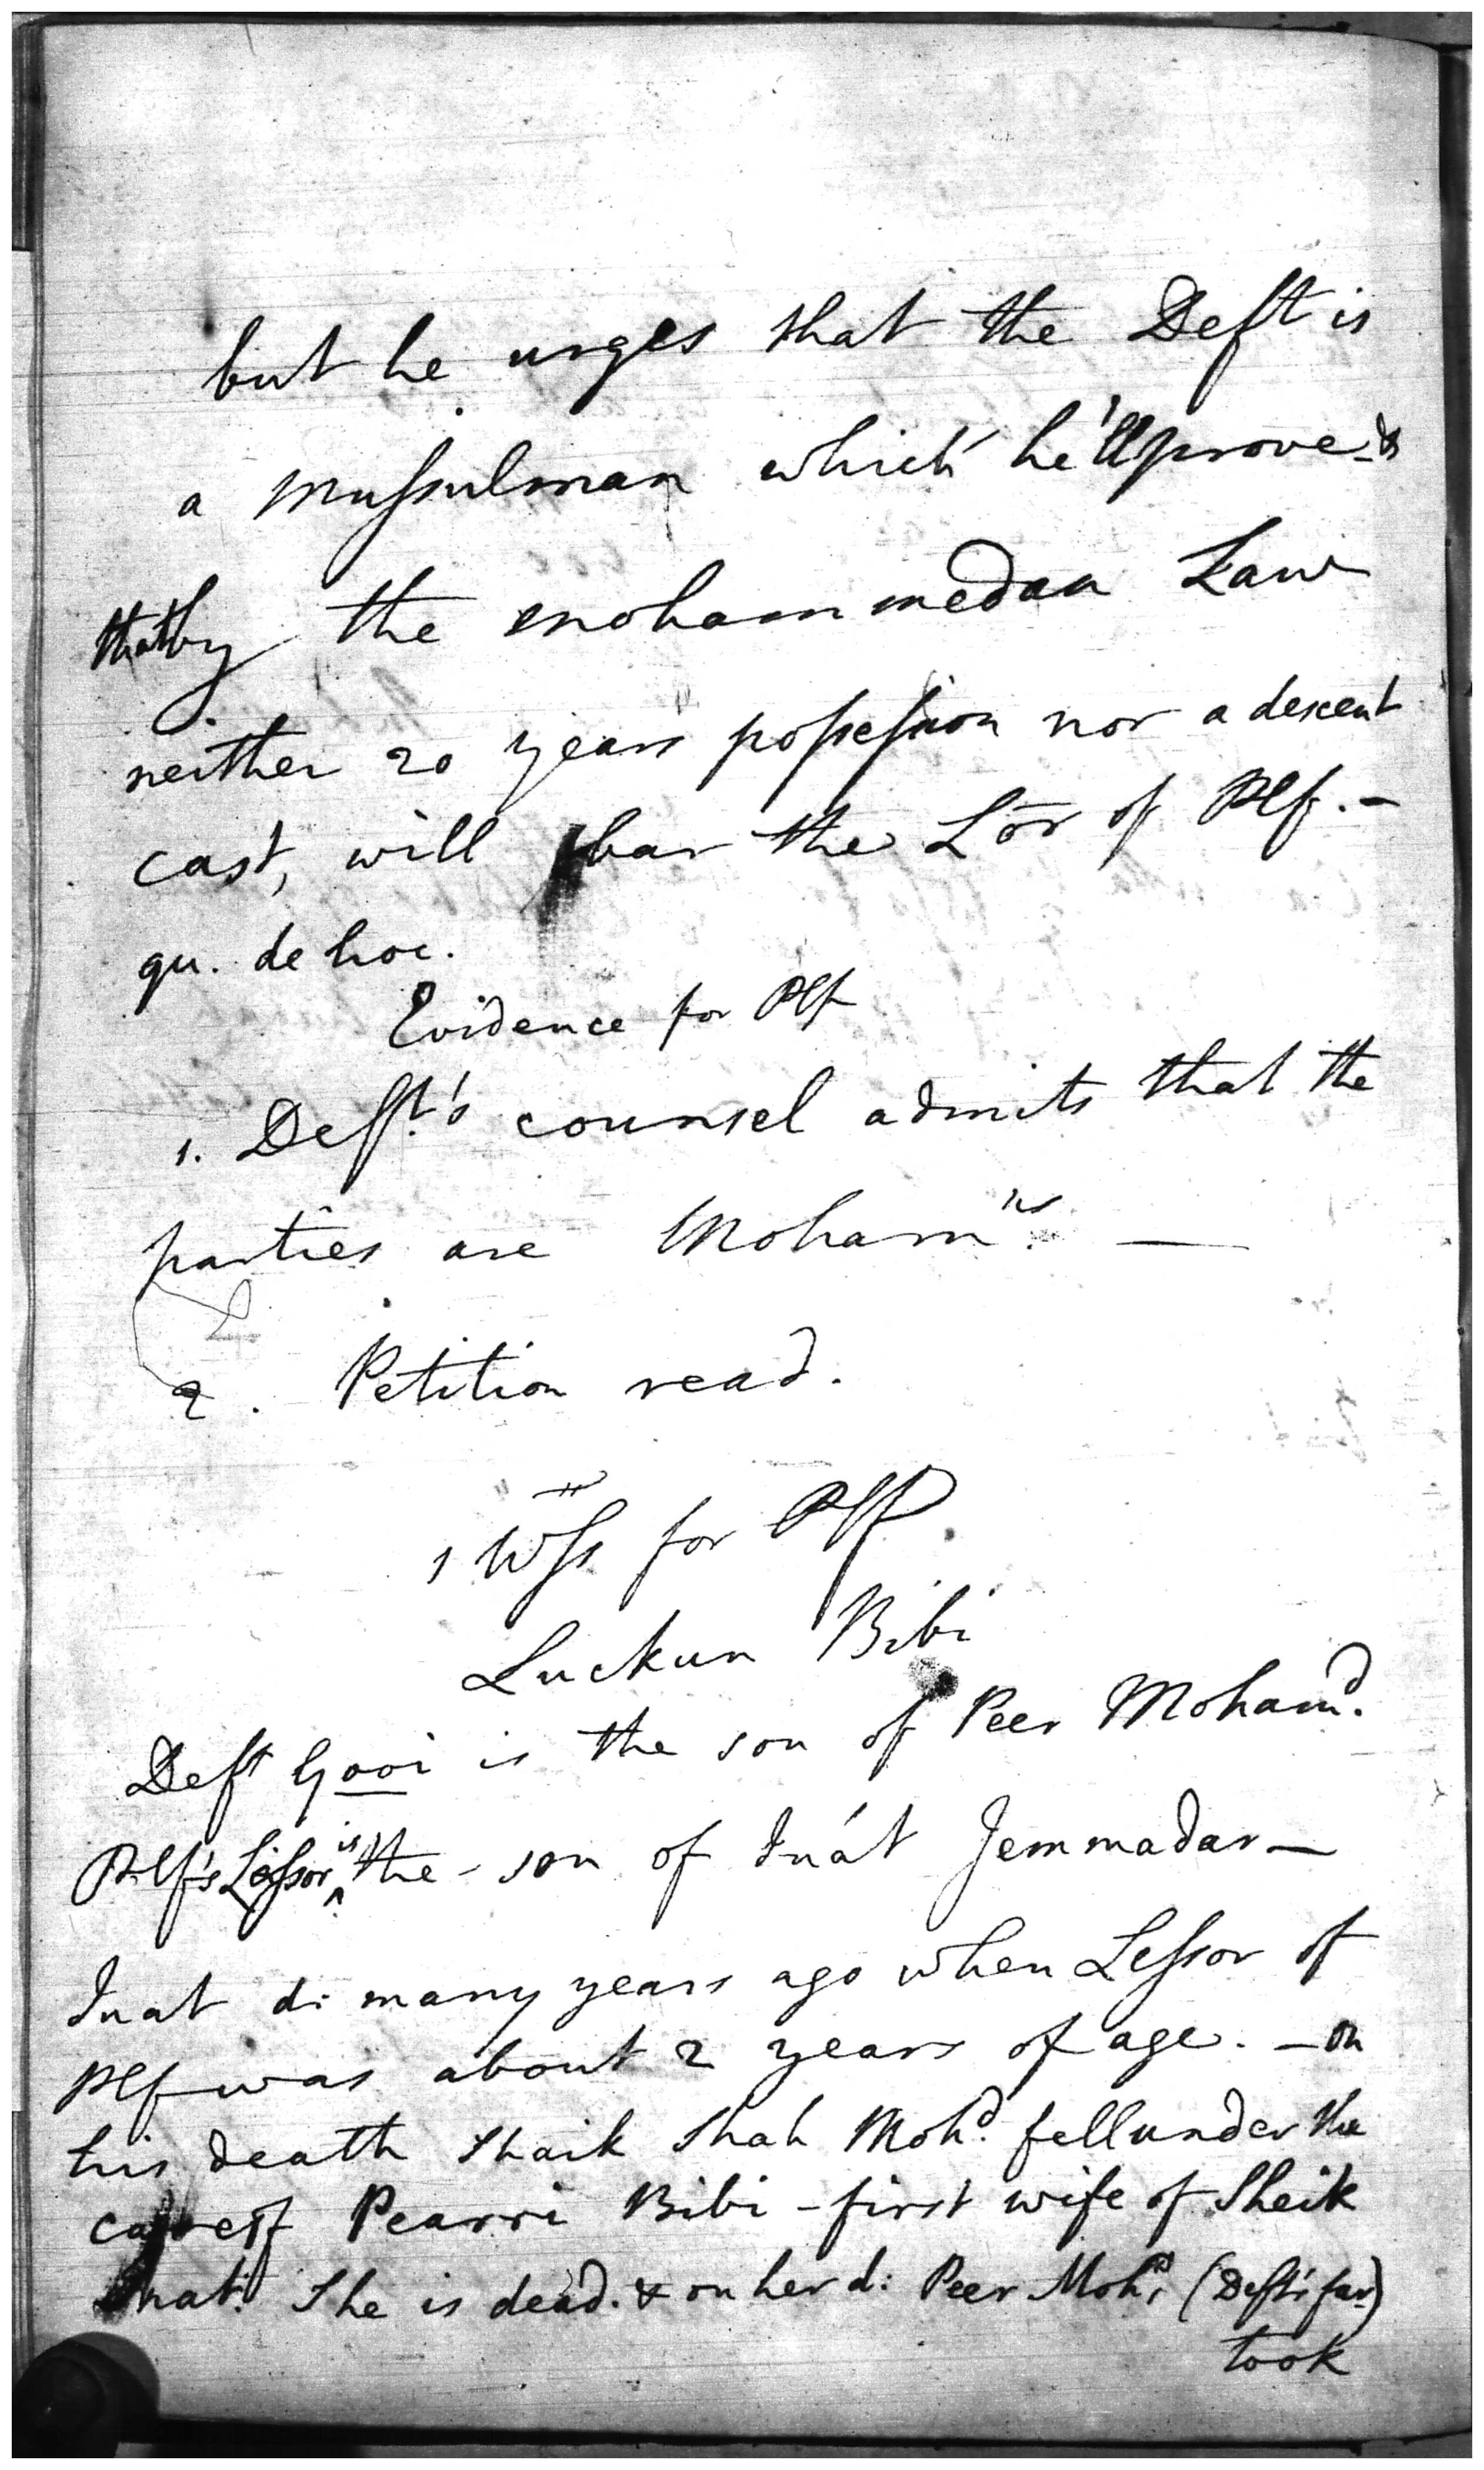 but he urges that the Deft is
a mussulman which he'll prove - &
that by the mohammedan Law
neither 20 years possession nor a descent
cast, will bar the Lor of Plf. -
qu. de hoc.
Evidence for Plf
1. Deft.'s counsel admits that the
parties are Mohamns. —
2. Petition read.
1 Wss for Plf
Luckun Bibi
Deft Gooi is the son of Peer Mohamd.
Plf's Lessor is the - son of Inát Jemmadar —
Inat di: many years ago when Lessor of
Plf was about 2 years of age. - on
his death Shaik Shah Mohd. fell under the
care of Pearri Bibi - first wife of Sheik
Inat. She is dead. & on her d: Peer Mohd. (Deft's far)
took